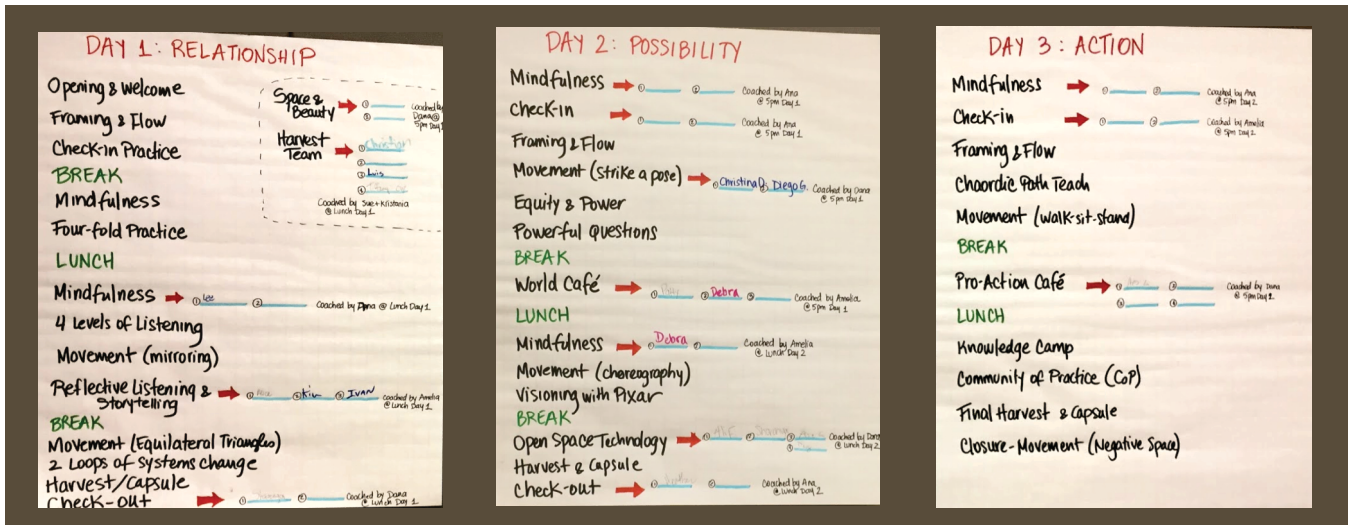 DAY 1: RELATIONSHIP
Opening & Welcome
Framing & Flow
Check-in Practice
BREAK
Mindfulness
Four-fold Practice
Space & Beauty
①
②
Coached by
Dana @
5pm Day 1
Harvest Team
① Christian
②
③ Luis
④
Coached by Sue + Kristania
@ Lunch Day 1
LUNCH
Mindfulness ① Lee ② Coached by Dana @ Lunch Day 1
4 Levels of Listening
Movement (mirroring)
Reflective Listening &
Storytelling
① ② Kim ③ IVAN
Coached by Amelia
@ Lunch Day 1
BREAK
Movement (Equilateral Triangles)
2 Loops of systems change
Harvest/Capsule
Check-out ① ②
Coached by Dana
@ Lunch Day 1
DAY 2: POSSIBILITY
Mindfulness ① ②
Coached by Ana
@ 5pm Day 1
Check-in ① ②
Coached by Ana
@ 5pm Day 1
Framing & Flow
Movement (strike a pose) ① Christina D. ② Diego G.
Coached by Dana
@ 5pm Day 1
Equity & Power
Powerful Questions
BREAK
World Café ① ② Debra ③
Coached by Amelia
@ 5pm Day 1
LUNCH
Mindfulness ① Debra ②
Coached by Amelia
@ Lunch Day 2
Movement (choreography)
Visioning with Pixar
BREAK
Open Space Technology ① ② ③
Coached by Dana
@ lunch Day 2
Harvest & Capsule
Check-out ① ②
Coached by Ana
@ Lunch Day 2
DAY 3: ACTION
Mindfulness ① ②
Coached by Ana
@ 5pm Day 2
Check-in ① ②
Coached by Amelia
@ 5pm Day 2
Framing & Flow
Chaordic Path Teach
Movement (walk-sit-stand)
BREAK
Pro-Action Café ① ②
③ ④
Coached by Dana
@ 5pm Day 2
LUNCH
Knowledge Camp
Community of Practice (CoP)
Final Harvest & Capsule
Closure-Movement (Negative Space)